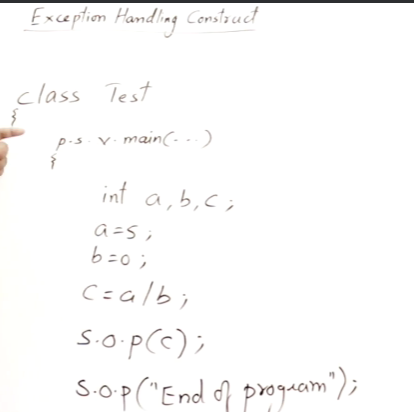 Exception Handling Construct
class Test
{
p.s. v. main(...)
{
int a, b, c;
a=5;
b=0;
c=a/b;
S.O.P(c);
S.O.P("End of program");